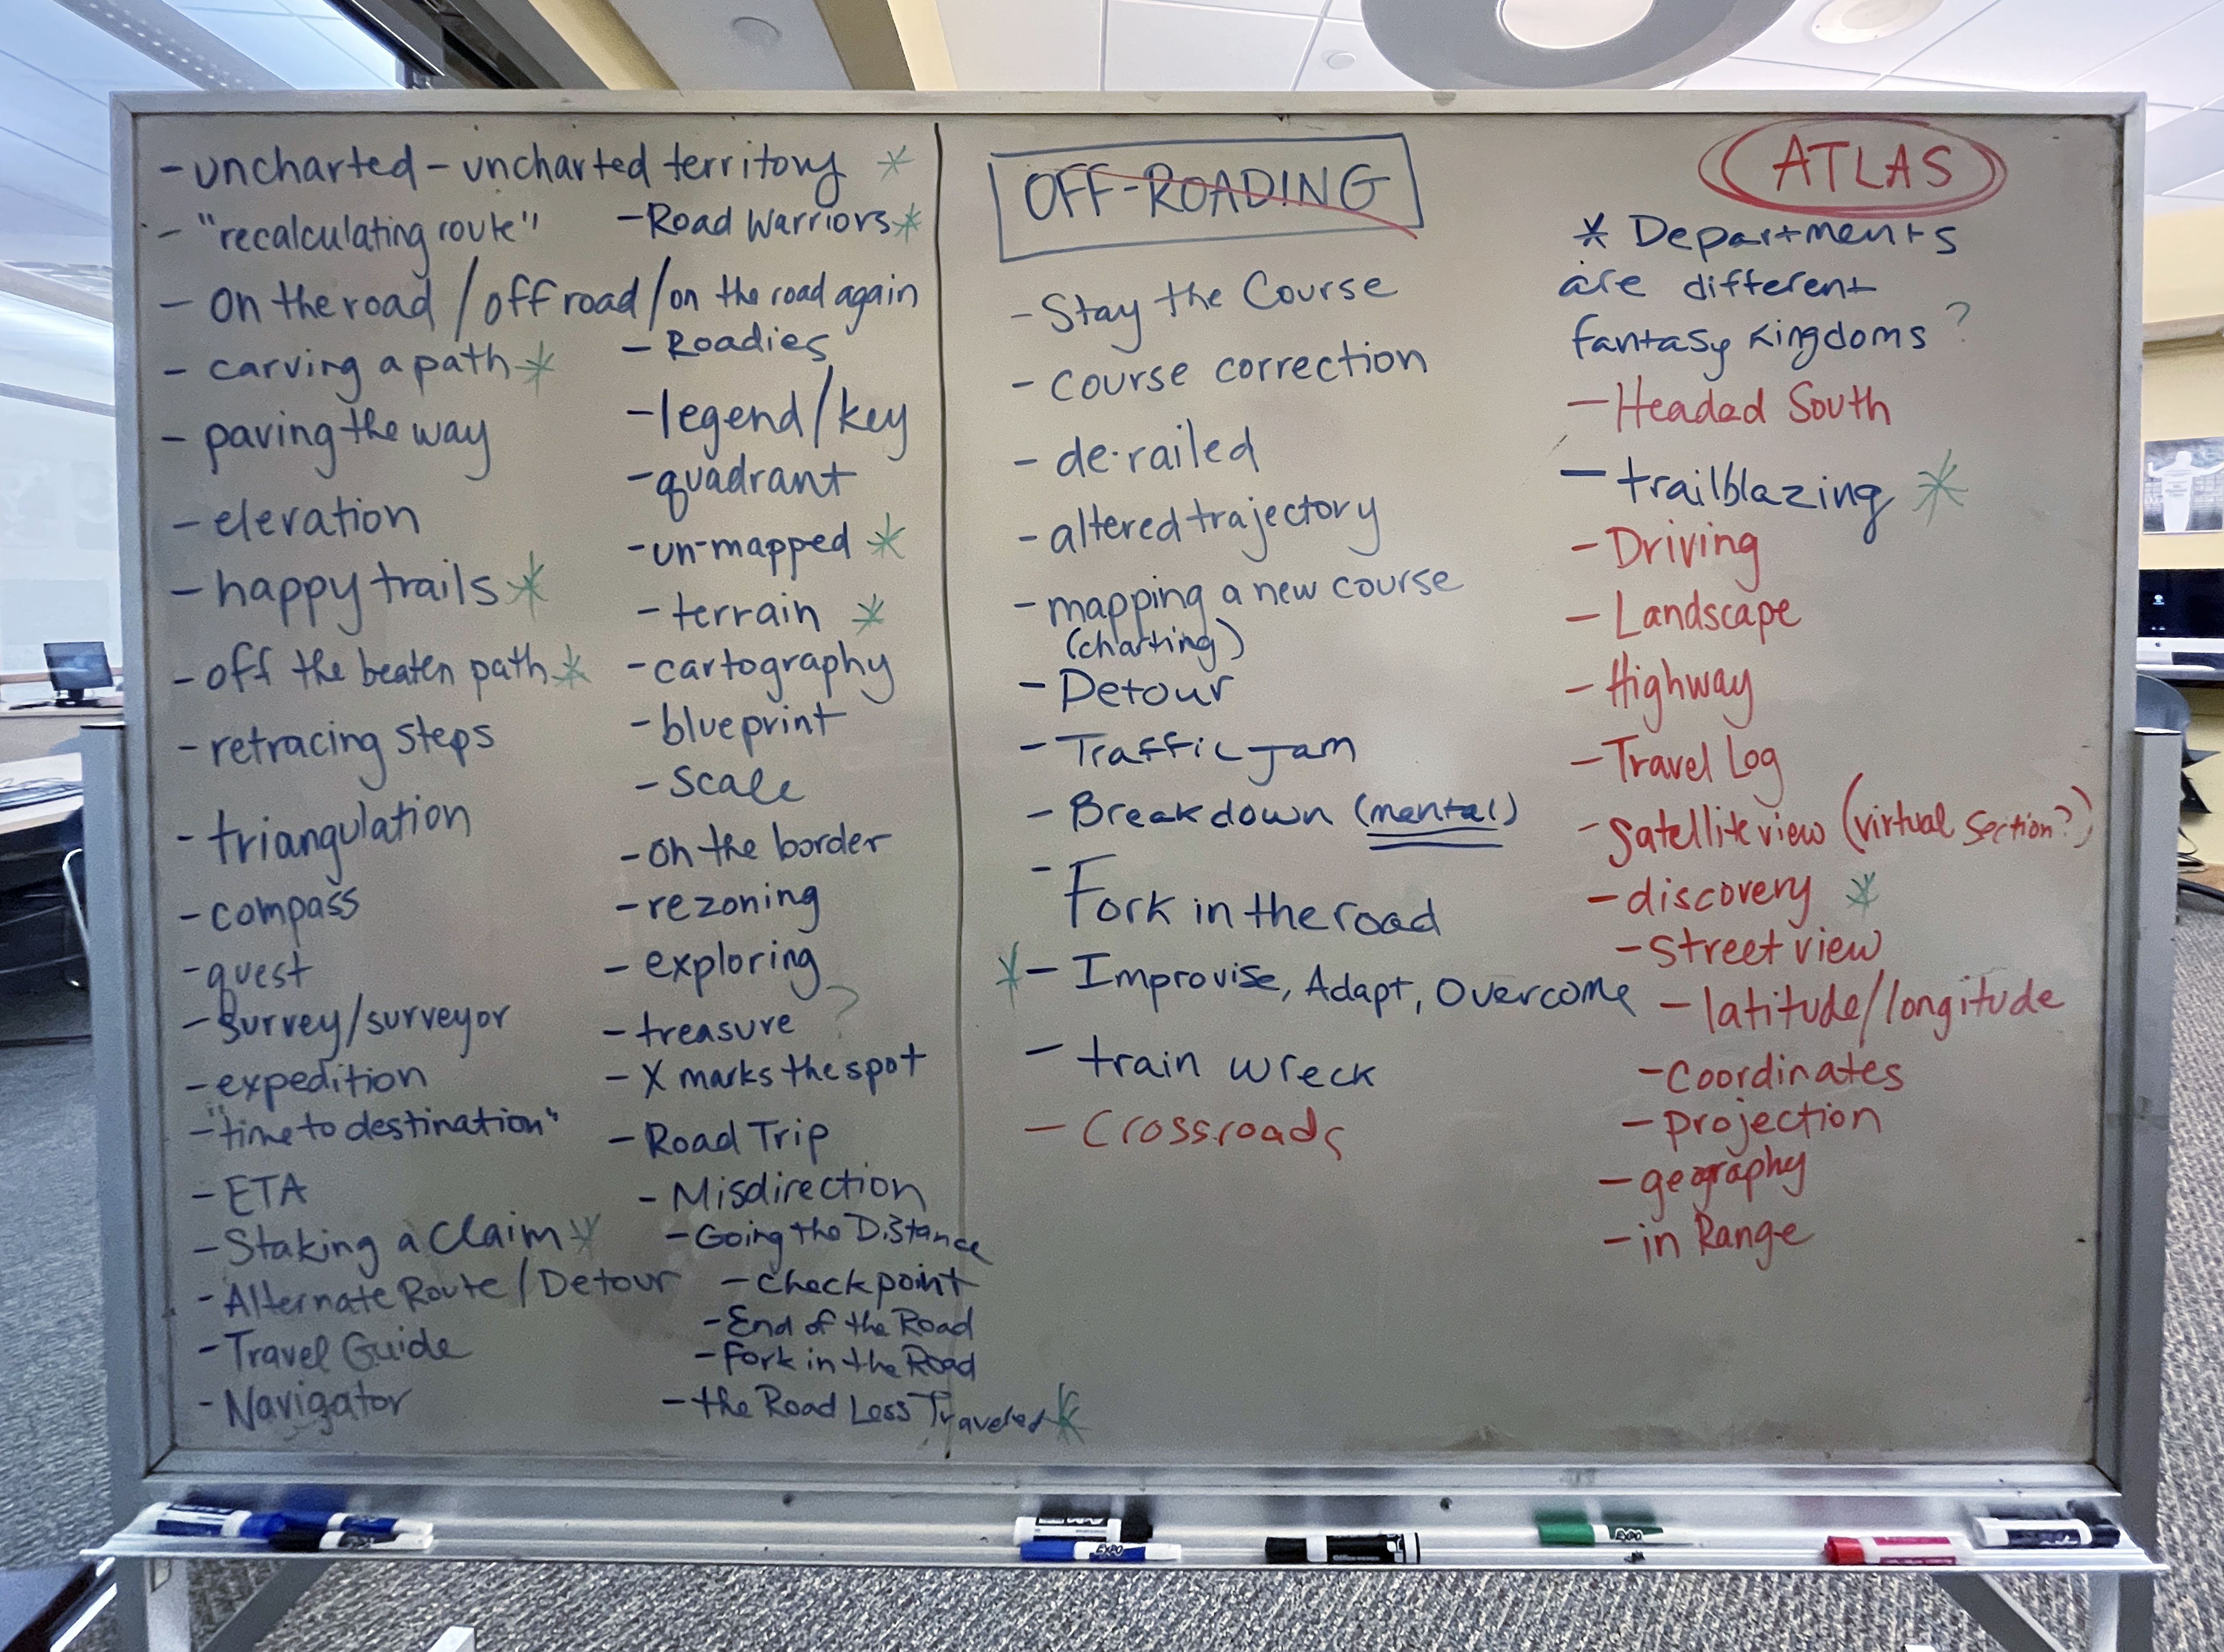 - uncharted - uncharted territory *
- "recalculating route"
- on the road / off road / on the road again
- carving a path *
- paving the way
- elevation
- happy trails *
- off the beaten path *
- retracing steps
- triangulation
- compass
- quest
- survey/surveyor
- expedition
- "time to destination"
- ETA
- Staking a Claim *
- Alternate Route / Detour
- Travel Guide
- Navigator
- Road Warriors *
- Roadies
- legend/key
- quadrant
- un-mapped *
- terrain *
- cartography
- blueprint
- scale
- on the border
- rezoning
- exploring
- treasure ?
- X marks the spot
- Road Trip
- Misdirection
- Going the Distance
- Checkpoint
- End of the Road
- Fork in the Road
- the Road Less Traveled *
OFF-ROADING
- Stay the Course
- course correction
- de-railed
- altered trajectory
- mapping a new course
(charting)
- Detour
- Traffic Jam
- Breakdown (mental)
- Fork in the road
* - Improvise, Adapt, Overcome
- train wreck
- Crossroads
ATLAS
* Departments
are different
fantasy kingdoms ?
- Headed South
- trailblazing *
- Driving
- Landscape
- Highway
- Travel Log
- Satellite view (virtual section?)
- discovery *
- street view
- latitude/longitude
- Coordinates
- projection
- geography
- in Range
EXPO
EXPO